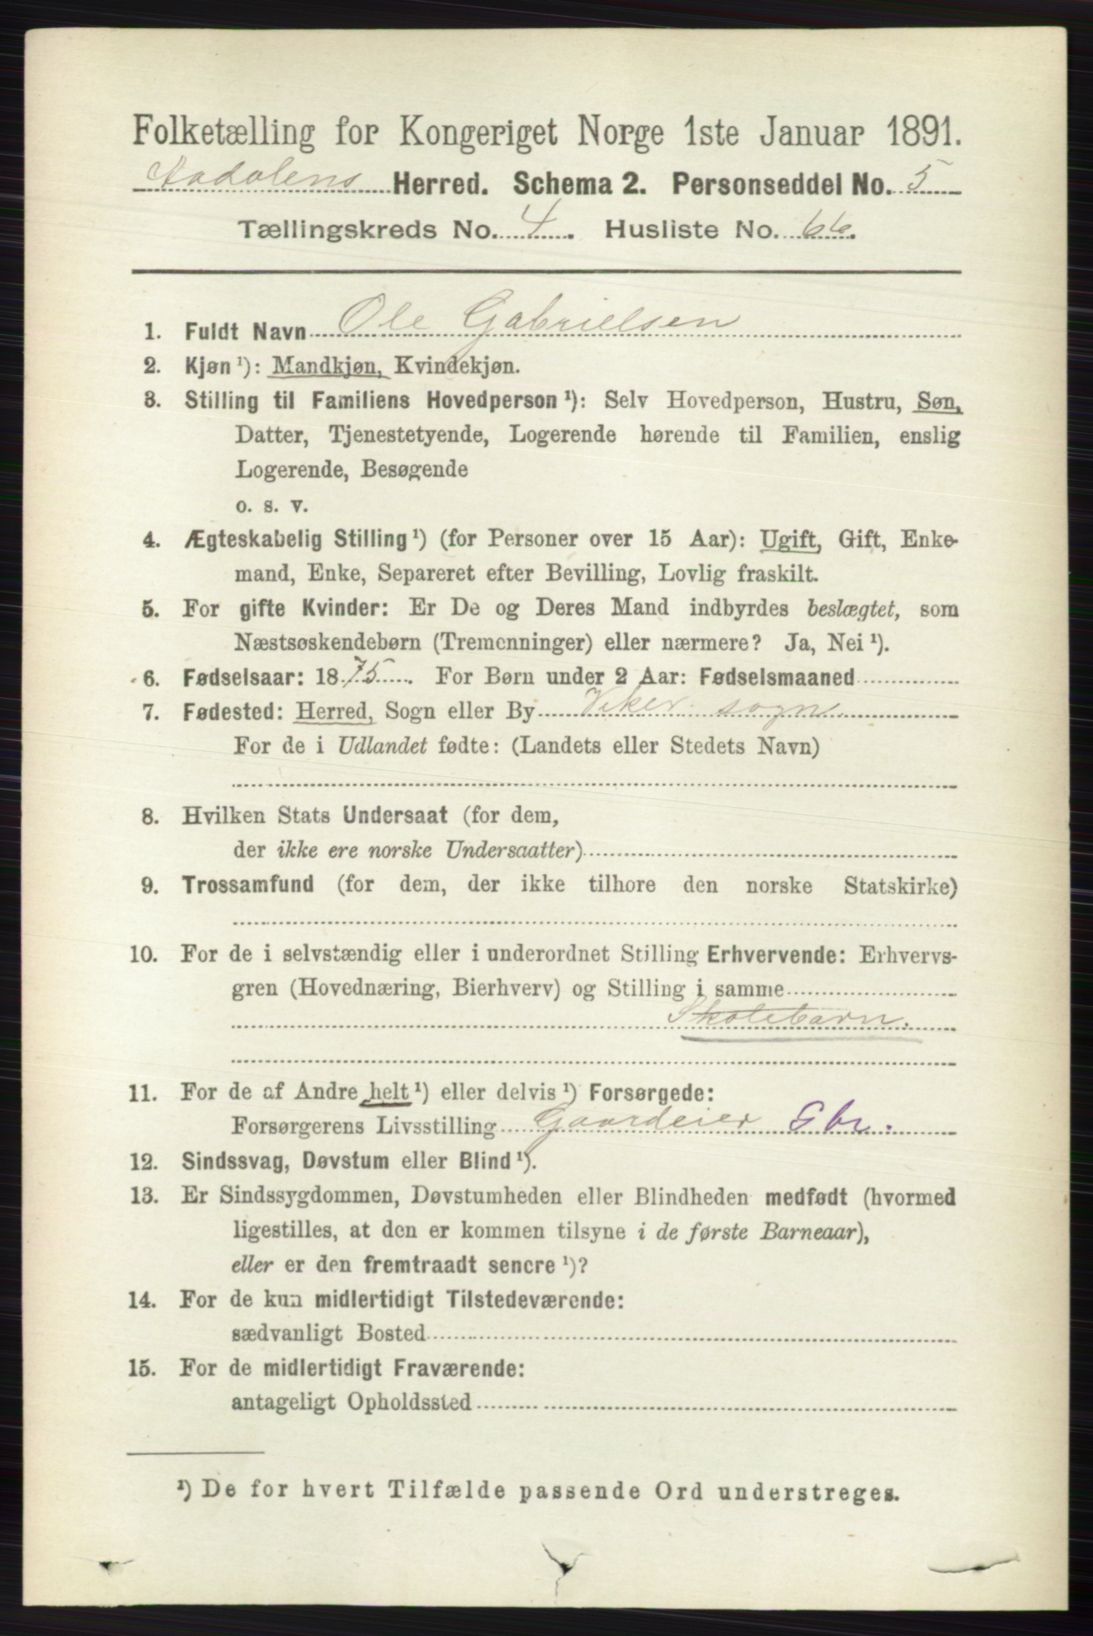 Folketælling for Kongeriget Norge 1ste Januar 1891.
Aadalens Herred. Schema 2. Personseddel No. 5
Tællingskreds No. 4. Husliste No. 66.
1. Fuldt Navn Ole Gabrielsen
2. Kjøn ¹): Mandkjøn, Kvindekjøn.
3. Stilling til Familiens Hovedperson ¹): Selv Hovedperson, Hustru, Søn,
Datter, Tjenestetyende, Logerende hørende til Familien, enslig
Logerende, Besøgende
o. s. v.
4. Ægteskabelig Stilling ¹) (for Personer over 15 Aar): Ugift, Gift, Enke-
mand, Enke, Separeret efter Bevilling, Lovlig fraskilt.
5. For gifte Kvinder: Er De og Deres Mand indbyrdes beslægtet, som
Næstsøskendebørn (Tremenninger) eller nærmere? Ja, Nei ¹).
6. Fødselsaar: 1875. For Børn under 2 Aar: Fødselsmaaned
7. Fødested: Herred, Sogn eller By Viker sogn
For de i Udlandet fødte: (Landets eller Stedets Navn)
8. Hvilken Stats Undersaat (for dem,
der ikke ere norske Undersaatter)
9. Trossamfund (for dem, der ikke tilhøre den norske Statskirke)
10. For de i selvstændig eller i underordnet Stilling Erhvervende: Erhvervs-
gren (Hovednæring, Bierhverv) og Stilling i samme
Skolebarn.
11. For de af Andre helt ¹) eller delvis ¹) Forsørgede:
Forsørgerens Livsstilling Gaardeier Gbr.
12. Sindssvag, Døvstum eller Blind ¹).
13. Er Sindssygdommen, Døvstumheden eller Blindheden medfødt (hvormed
ligestilles, at den er kommen tilsyne i de første Barneaar),
eller er den fremtraadt senere ¹)?
14. For de kun midlertidigt Tilstedeværende:
sædvanligt Bosted
15. For de midlertidigt Fraværende:
antageligt Opholdssted
¹) De for hvert Tilfælde passende Ord understreges.